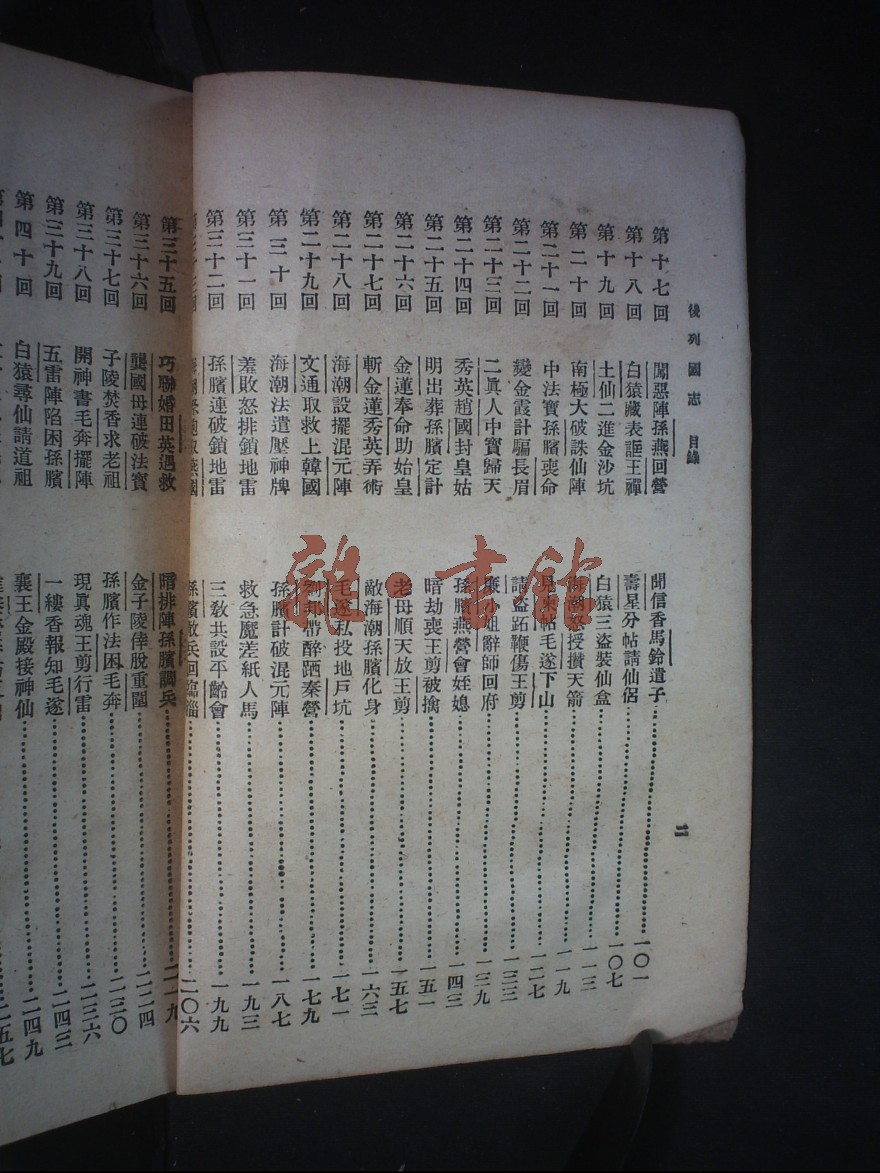 後列國志 目錄
二
第十七回 闖惡陣孫燕回營 聞信香馬鈴遣子 一〇一
第十八回 白猿藏表誆王禪 壽星分帖請仙侶 一〇七
第十九回 土仙二進金沙坑 白猿三盜裝仙盒 一一三
第二十回 南極大破誅仙陣 海潮怒授攢天箭 一一九
第二十一回 中法寶孫臏喪命 見柬帖毛遂下山 一二七
第二十二回 變金霞計騙長眉 請盜跖鞭傷王剪 一三三
第二十三回 二眞人中寶歸天 廉小姐辭師回府 一三九
第二十四回 秀英趙國封皇姑 孫臏燕營會姪媳 一四三
第二十五回 明出葬孫臏定計 暗劫喪王剪被擒 一五一
第二十六回 金蓮奉命助始皇 老母順天放王剪 一五七
第二十七回 斬金蓮秀英弄術 敵海潮孫臏化身 一六三
第二十八回 海潮設擺混元陣 毛遂私投地戶坑 一七一
第二十九回 文通取救上韓國 劉邦帶醉跴秦營 一七九
第三十回 海潮法遣壓神牌 孫臏計破混元陣 一八七
第三十一回 羞敗怒排鎖地雷 救急魔差紙人馬 一九三
第三十二回 孫臏連破鎖地雷 三敎共設平齡會 一九九
孫臏 兵回臨淄 二〇六
第三十五回 巧聯婚田英遇救 暗排陣孫臏調兵 二一九
第三十六回 龔國母連破法寶 金子陵倖脫重圍 二二四
第三十七回 子陵焚香求老祖 孫臏作法困毛奔 二三〇
第三十八回 開神書毛奔擺陣 現眞魂王剪行雷 二三六
第三十九回 五雷陣陷困孫臏 一縷香報知毛遂 二四三
第四十回 白猿尋仙請道祖 襄王金殿接神仙 二四九
二五七
雜·書館